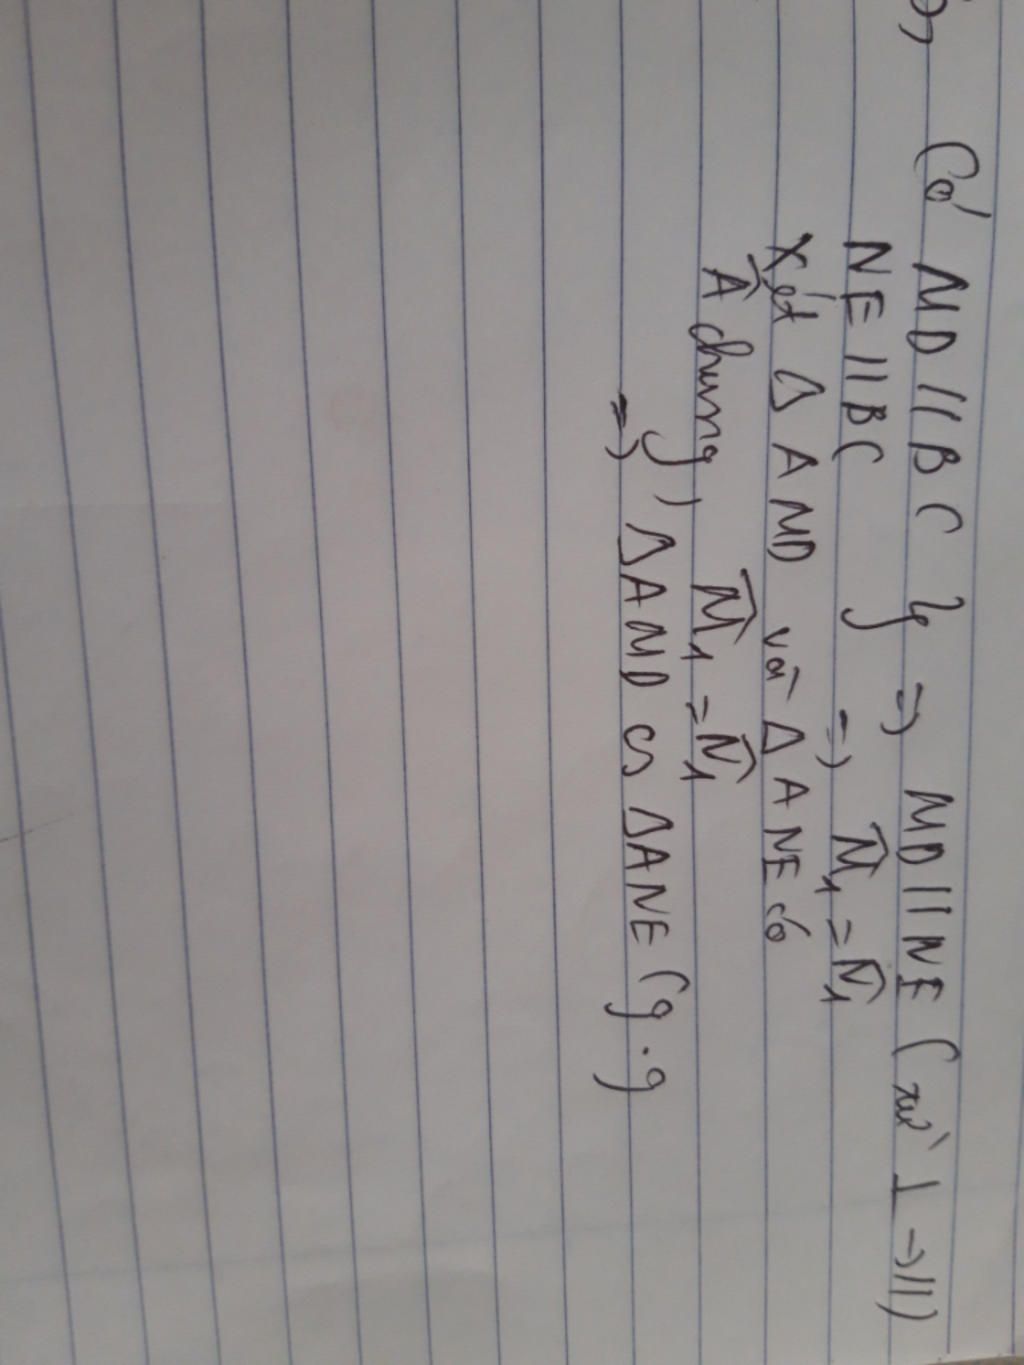 Có MD // BC } => MD // NE (từ ⊥ -> //)
NE // BC } => M̂₁ = N̂₁
Xét Δ AMD và Δ ANE có
Â chung, M̂₁ = N̂₁
=> ΔAMD ∽ ΔANE (g.g